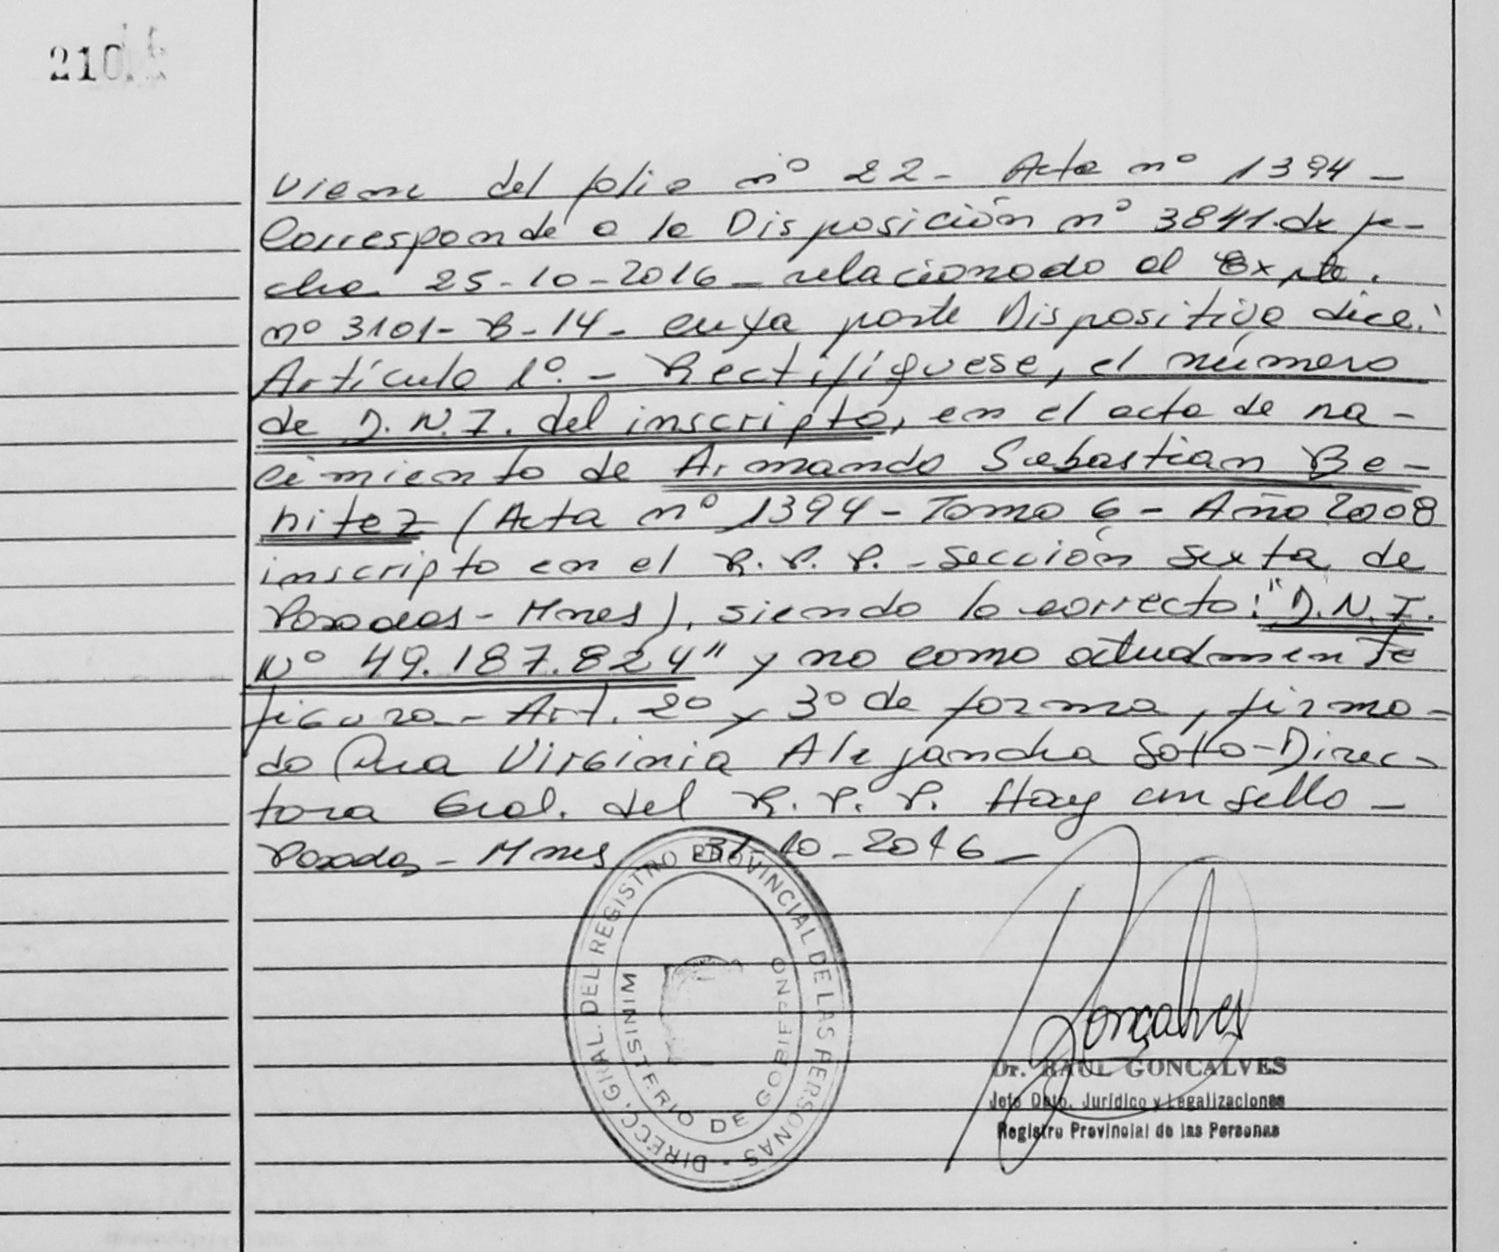 210
Viene del folio nº 22 - Acta nº 1394 -
Corresponde a la Disposición nº 3841 de fe-
cha 25-10-2016 - relacionado al Expte.
nº 3101-B-14 - cuya parte Dispositiva dice:
Artículo 1º. - Rectifíquese, el número
de D.N.I. del inscripto, en el acta de na-
cimiento de Armando Sebastian Be-
nitez (Acta nº 1394 - Tomo 6 - Año 2008
inscripto en el R.P.P. - Sección Sexta de
Posadas - Mnes), siendo lo correcto: "D.N.I.
Nº 49.187.824" y no como actualmente
figura - Art. 2º y 3º de forma, firma-
do Virginia Alejandra Soto - Direc-
tora Gral. del R.P.P. Hay un sello -
Posadas - Mnes, 31-10-2016 -
DIRECC. GRAL. DEL REGISTRO PROVINCIAL DE LAS PERSONAS
MINISTERIO DE GOBIERNO
Goncalves
Dr. RAUL GONCALVES
Jefe Dpto. Jurídico y Legalizaciones
Registro Provincial de las Personas